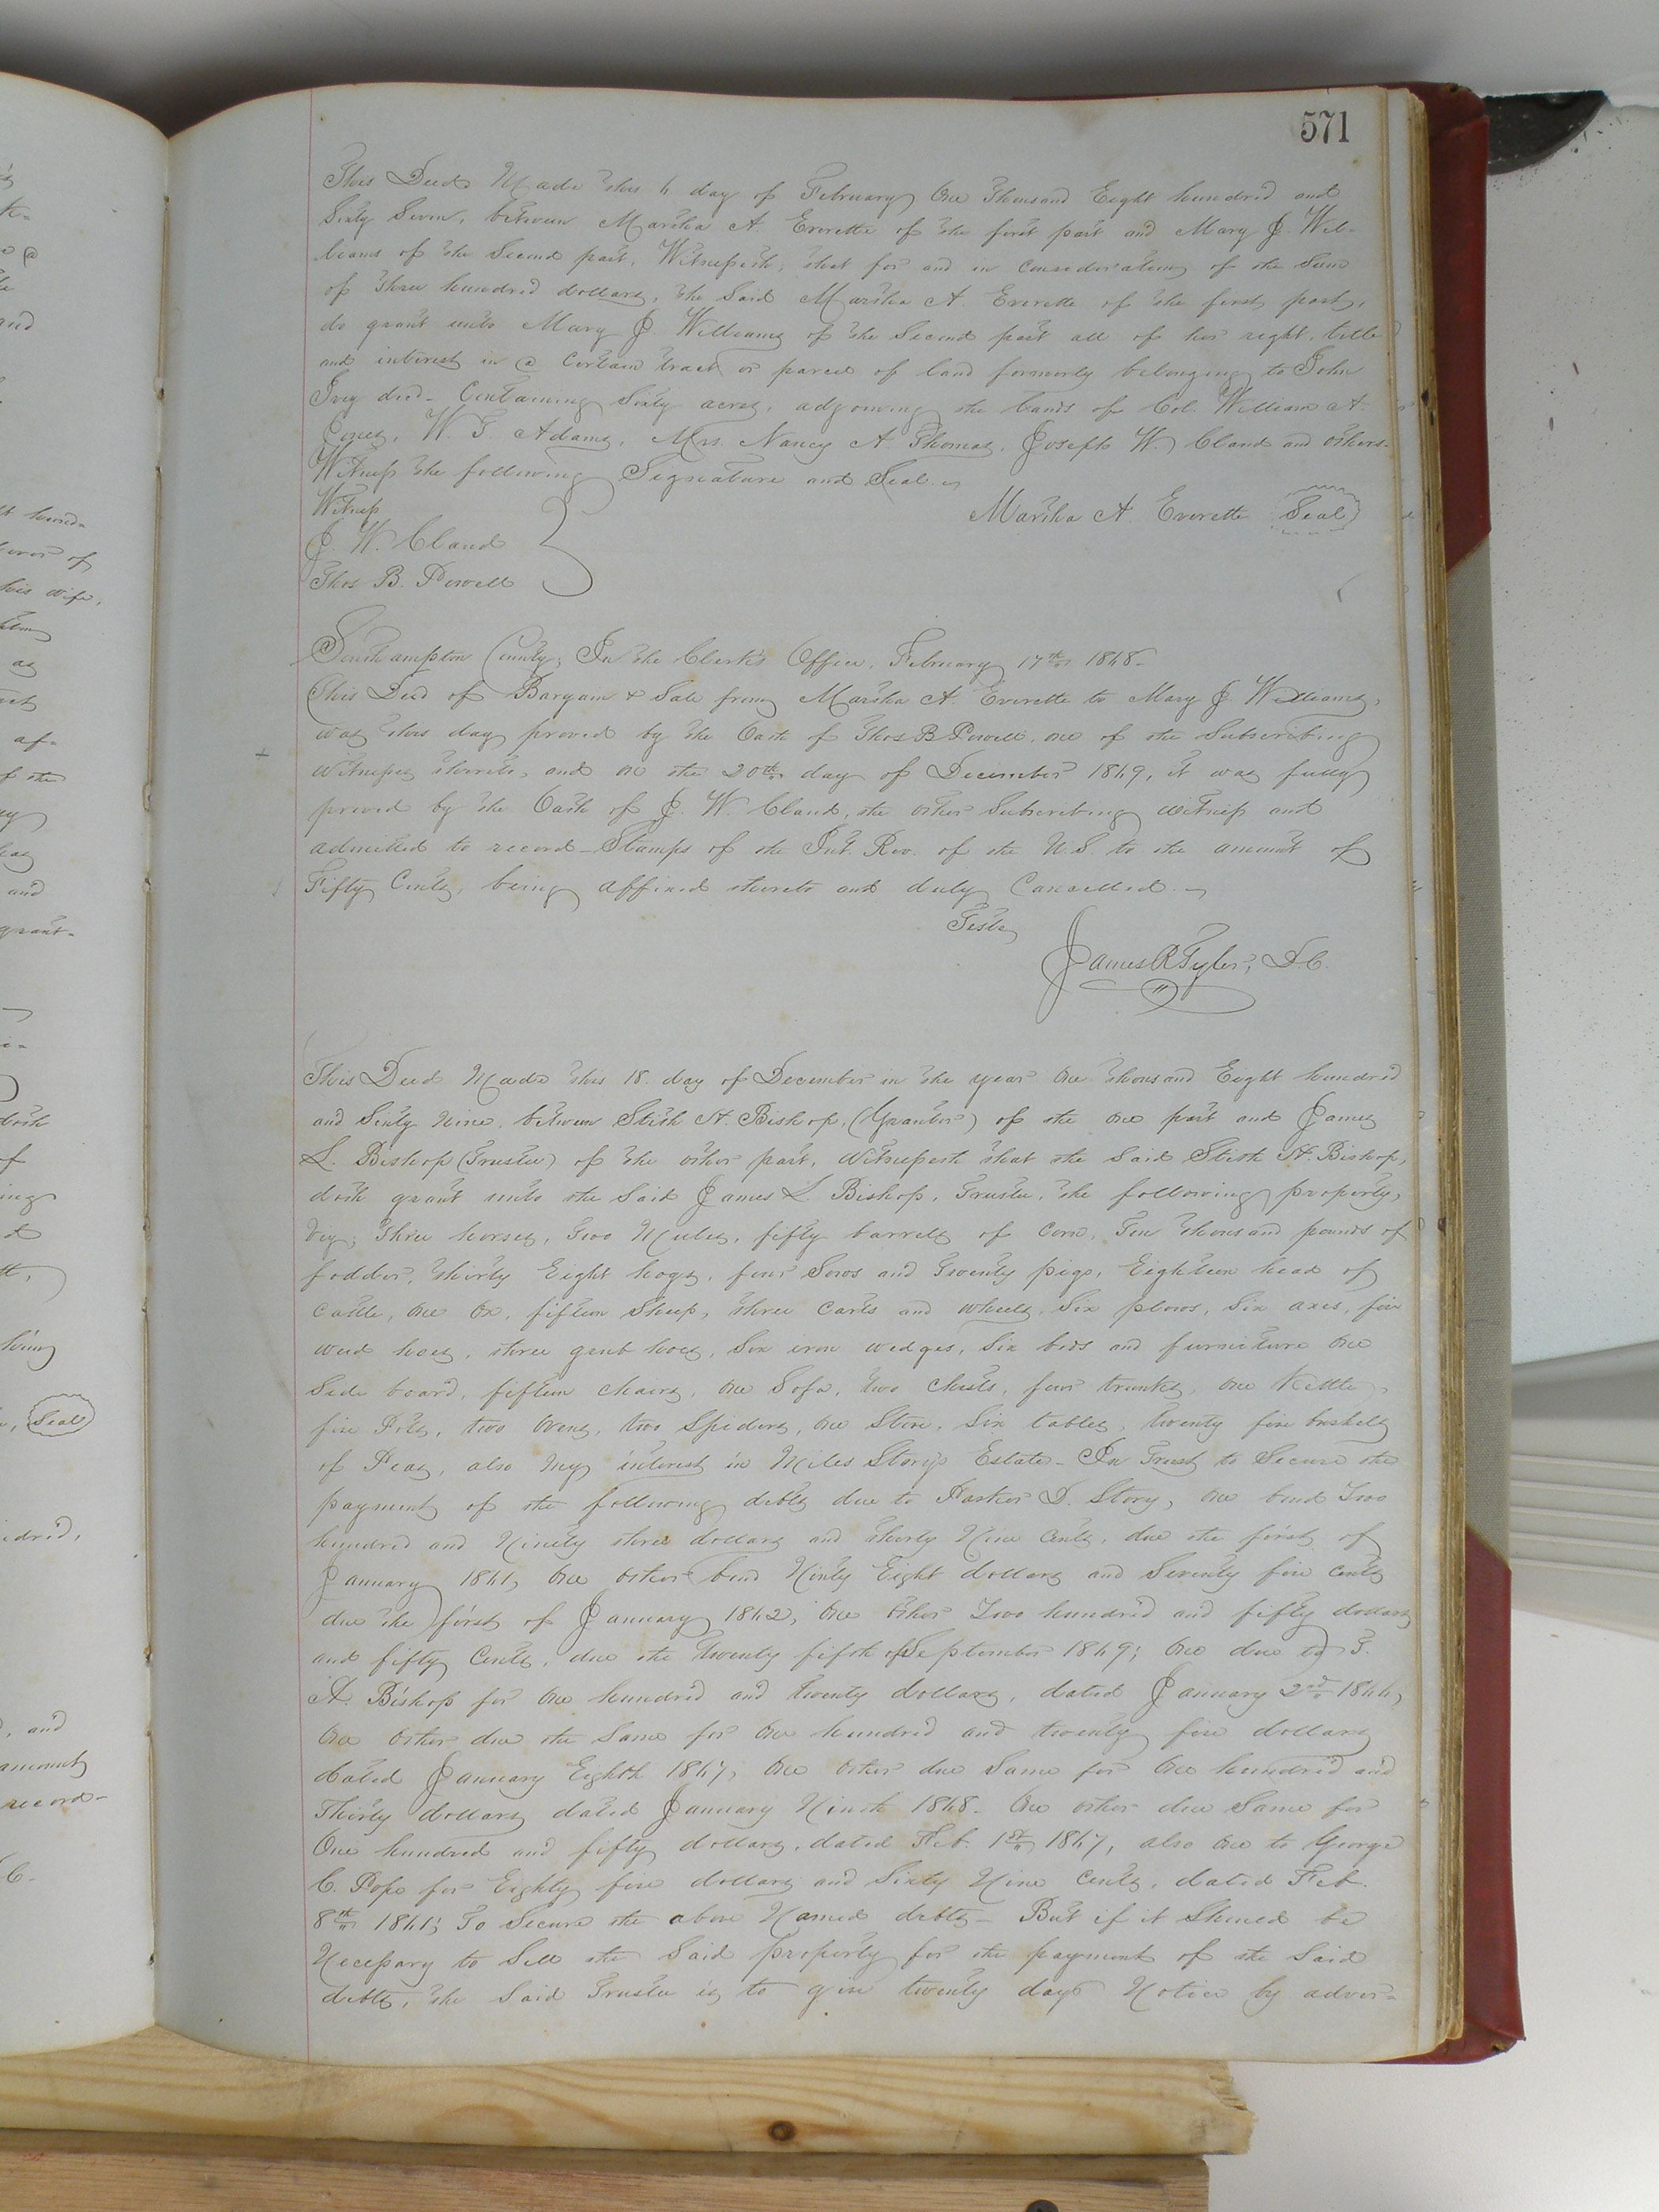 571
This Deed Made this 4 day of February One Thousand Eight hundred and
Sixty Seven, between Martha A. Everette of the first part and Mary J. Wil-
liams of the Second part, Witnesseth, that for and in consideration of the Sum
of three hundred dollars, the Said Martha A. Everette of the first part,
do grant unto Mary J. Williams of the Second part all of her right, title
and interest in a Certain tract or parcel of land formerly belonging to John
Ivey dec'd - Containing Sixty acres, adjoining the lands of Col. William A.
W. T. Adams, Mrs. Nancy A. Thomas, Joseph W. Claud and others
Witness the following Signature and Seal.
Martha A. Everette Seal
Witness
J. W. Claud
Thos B. Powell
Southampton County; In the Clerk's Office, February 17th 1868.
This Deed of Bargain & Sale from Martha A. Everette to Mary J. Williams,
was this day proved by the Oath of Thos B Powell, one of the Subscribing
Witnesses thereto, and on the 20th day of December 1869, it was fully
proved by the Oath of J. W. Claud, the other Subscribing witness and
admitted to record - Stamps of the Int. Rev. of the U.S. to the amount of
Fifty Cents, being affixed thereto and duly Cancelled.
Teste
James R Tyler, D.C.
This Deed Made this 18 day of December in the year One thousand Eight hundred
and Sixty Nine, between Stith H. Bishop, (Grantor) of the one part and James
L. Bishop (Trustee) of the other part, Witnesseth that the Said Stith H. Bishop,
doth grant unto the Said James L Bishop, Trustee, the following property,
Viz; Three horses, Two Mules, fifty barrels of Corn, Ten thousand pounds of
fodder, thirty Eight hogs, four Sows and Twenty pigs, Eighteen head of
Cattle, One Ox, fifteen Sheep, three Carts and wheels, Six plows, Six axes, five
weed hoes, three grub hoes, Six iron wedges, Six beds and furniture One
Side board, fifteen chairs, One Sofa, two Chests, four trunks, one Kettle,
five Pots, two Ovens, two Spiders, one Stove, Six tables, twenty five bushels
of Peas, also my interest in Miles Story's Estate - In Trust to Secure the
payment of the following debts due to Parker D. Story, One bond Two
hundred and Ninety three dollars and thirty Nine Cents, due the first of
January 1861, One other bond Ninty Eight dollars and Seventy five cents
due the first of January 1862, One other Two hundred and fifty dollars
and fifty Cents, due the twenty fifth of September 1869; One due to T.
A. Bishop for One hundred and twenty dollars, dated January 2nd 1866,
One other due the Same for One hundred and twenty five dollars
dated January Eighth 1867, One other due Same for One hundred and
Thirty dollars dated January Ninth 1868. One other due Same for
One hundred and fifty dollars, dated Feb. 1st 1867, also One to George
C. Pope for Eighty five dollars and Sixty Nine Cents, dated Feb.
8th 1861; To Secure the above Named debts - But if it Should be
Necessary to Sell the Said property for the payment of the Said
debts, the Said Trustee is to give twenty days Notice by adver-